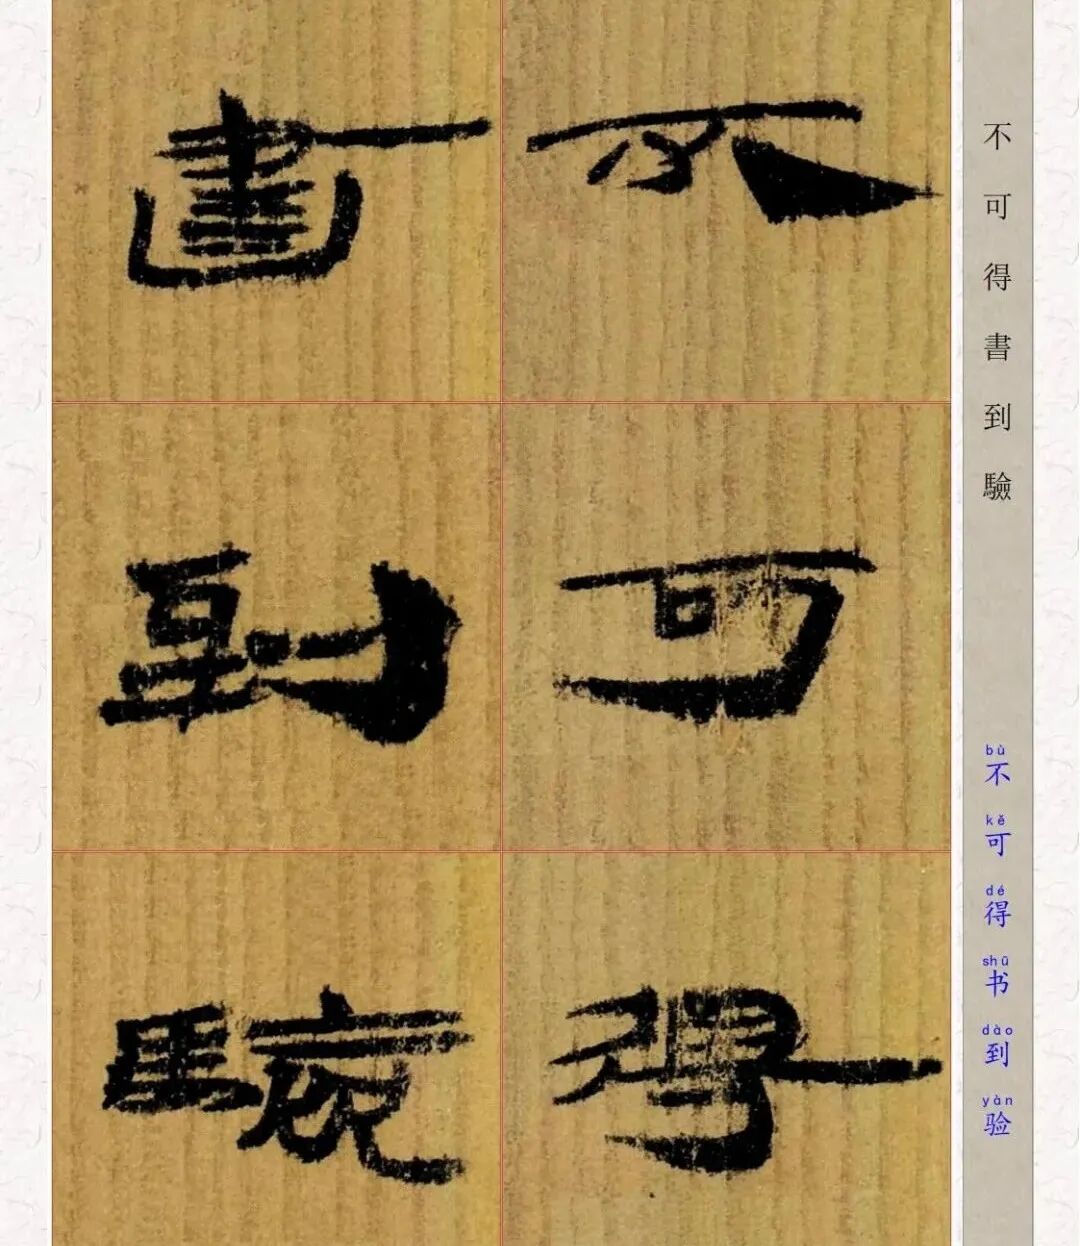 不可得書到驗
bù kě dé shū dào yàn
不可得书到验
不可得
書到驗